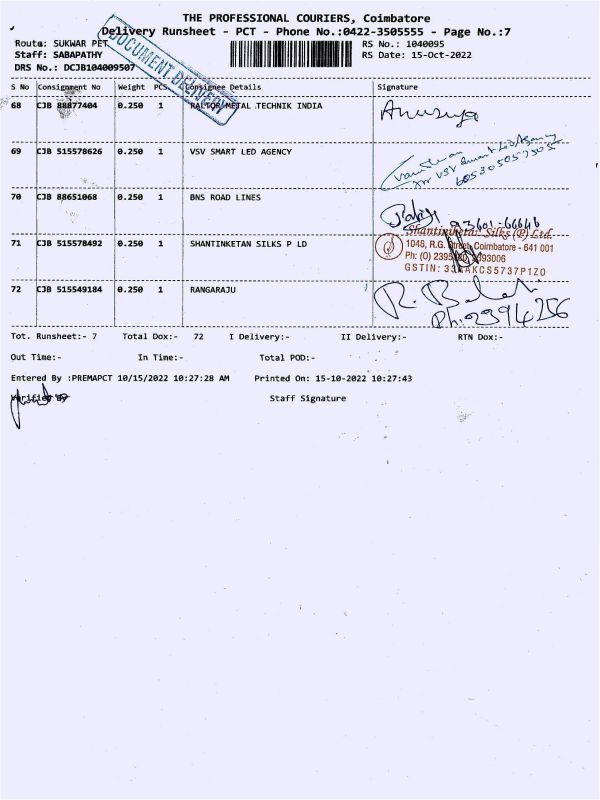 THE PROFESSIONAL COURIERS, Coimbatore
Delivery Runsheet - PCT - Phone No.:0422-3505555 - Page No.:7
Route: SUKWAR PET
RS No.: 1040095
Staff: SABAPATHY
RS Date: 15-Oct-2022
DRS No.: DCJB104009507
DOCUMENT DELIVERY
S No Consignment No Weight PCS Consignee Details Signature
68 CJB 88877404 0.250 1 METAL TECHNIK INDIA
Anusuya
69 CJB 515578626 0.250 1 VSV SMART LED AGENCY
for VSV Smart Led Agency
70 CJB 88651068 0.250 1 BNS ROAD LINES
93601-66646
Shantiniketan Silks (P) Ltd.
71 CJB 515578492 0.250 1 SHANTINKETAN SILKS P LD
1048, R.G. Street, Coimbatore - 641 001
Ph: (O)
GSTIN:
72 CJB 515549184 0.250 1 RANGARAJU
Ph: 2394256
Tot. Runsheet:- 7 Total Dox:- 72 I Delivery:- II Delivery:- RTN Dox:-
Out Time:- In Time:- Total POD:-
Entered By :PREMAPCT 10/15/2022 10:27:28 AM Printed On: 15-10-2022 10:27:43
Verified By Staff Signature